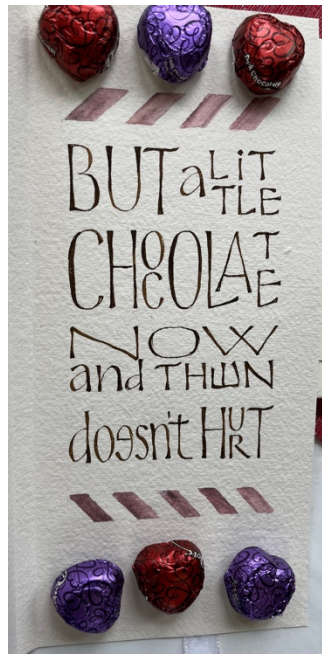 BUT a LiTTLE
CHOCOLATE
NOW
and THEN
doesn't HURT